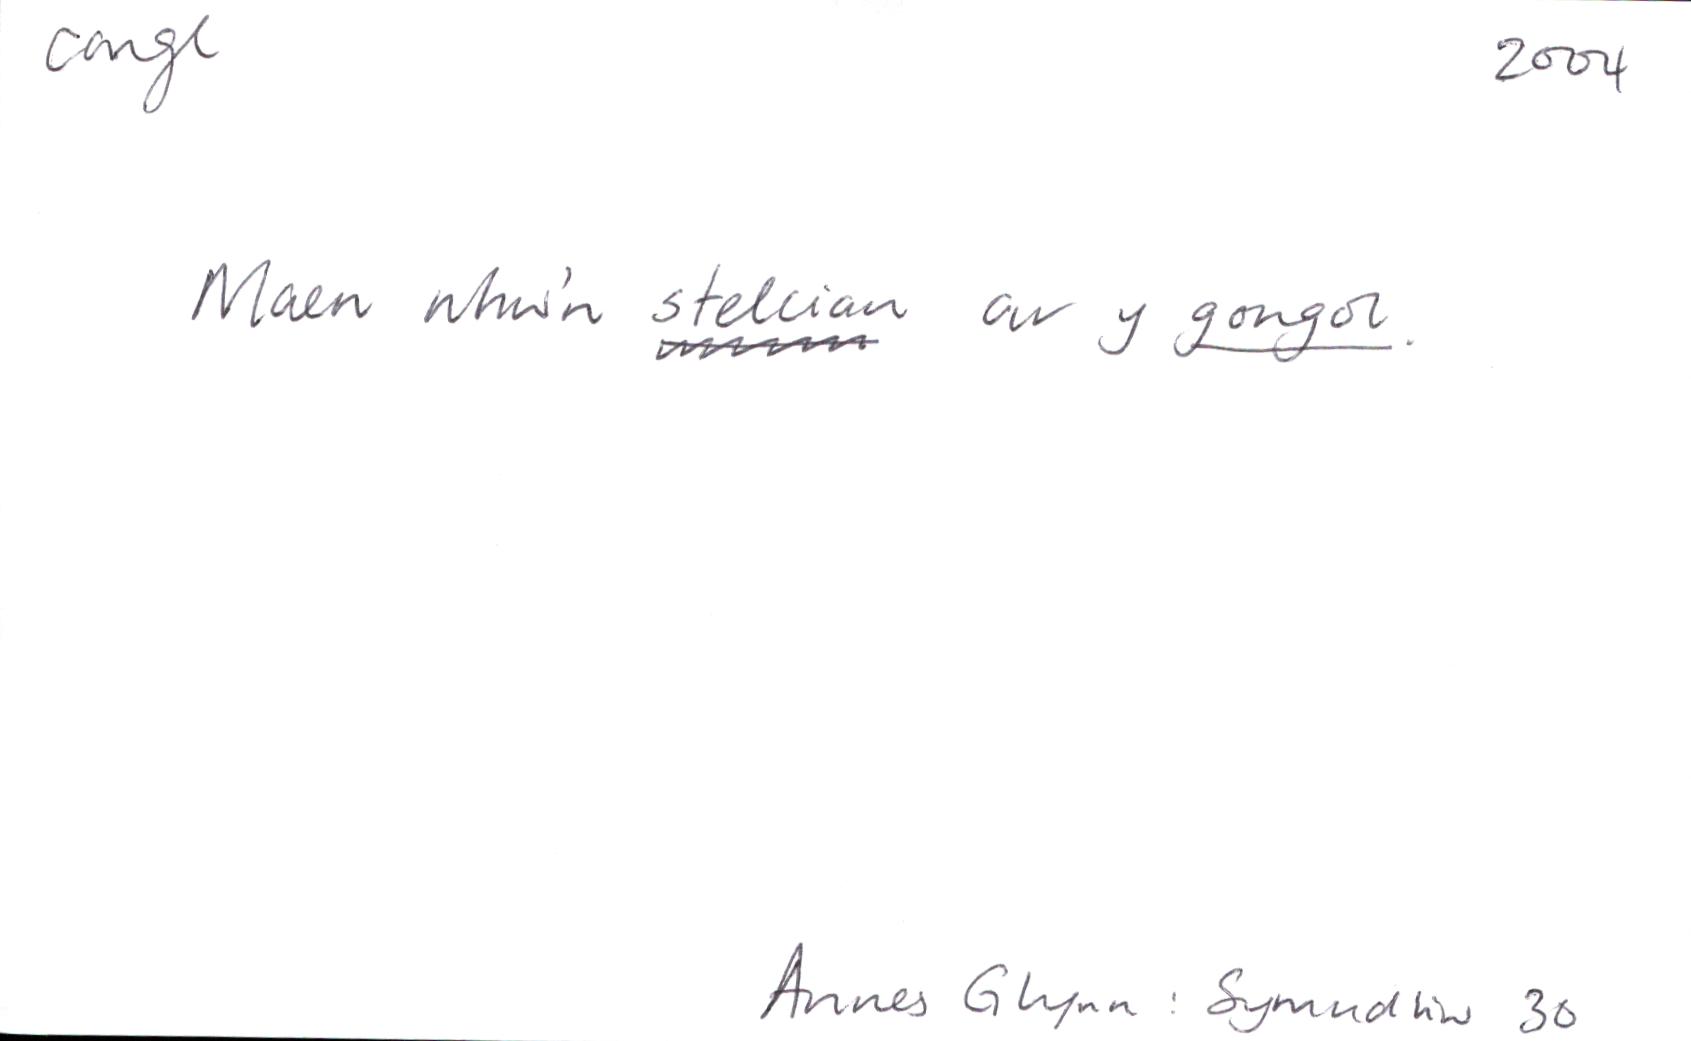 congl 2004
Maen nhw'n stelcian ar y gongol.
Annes Glynn: Symudliw 30